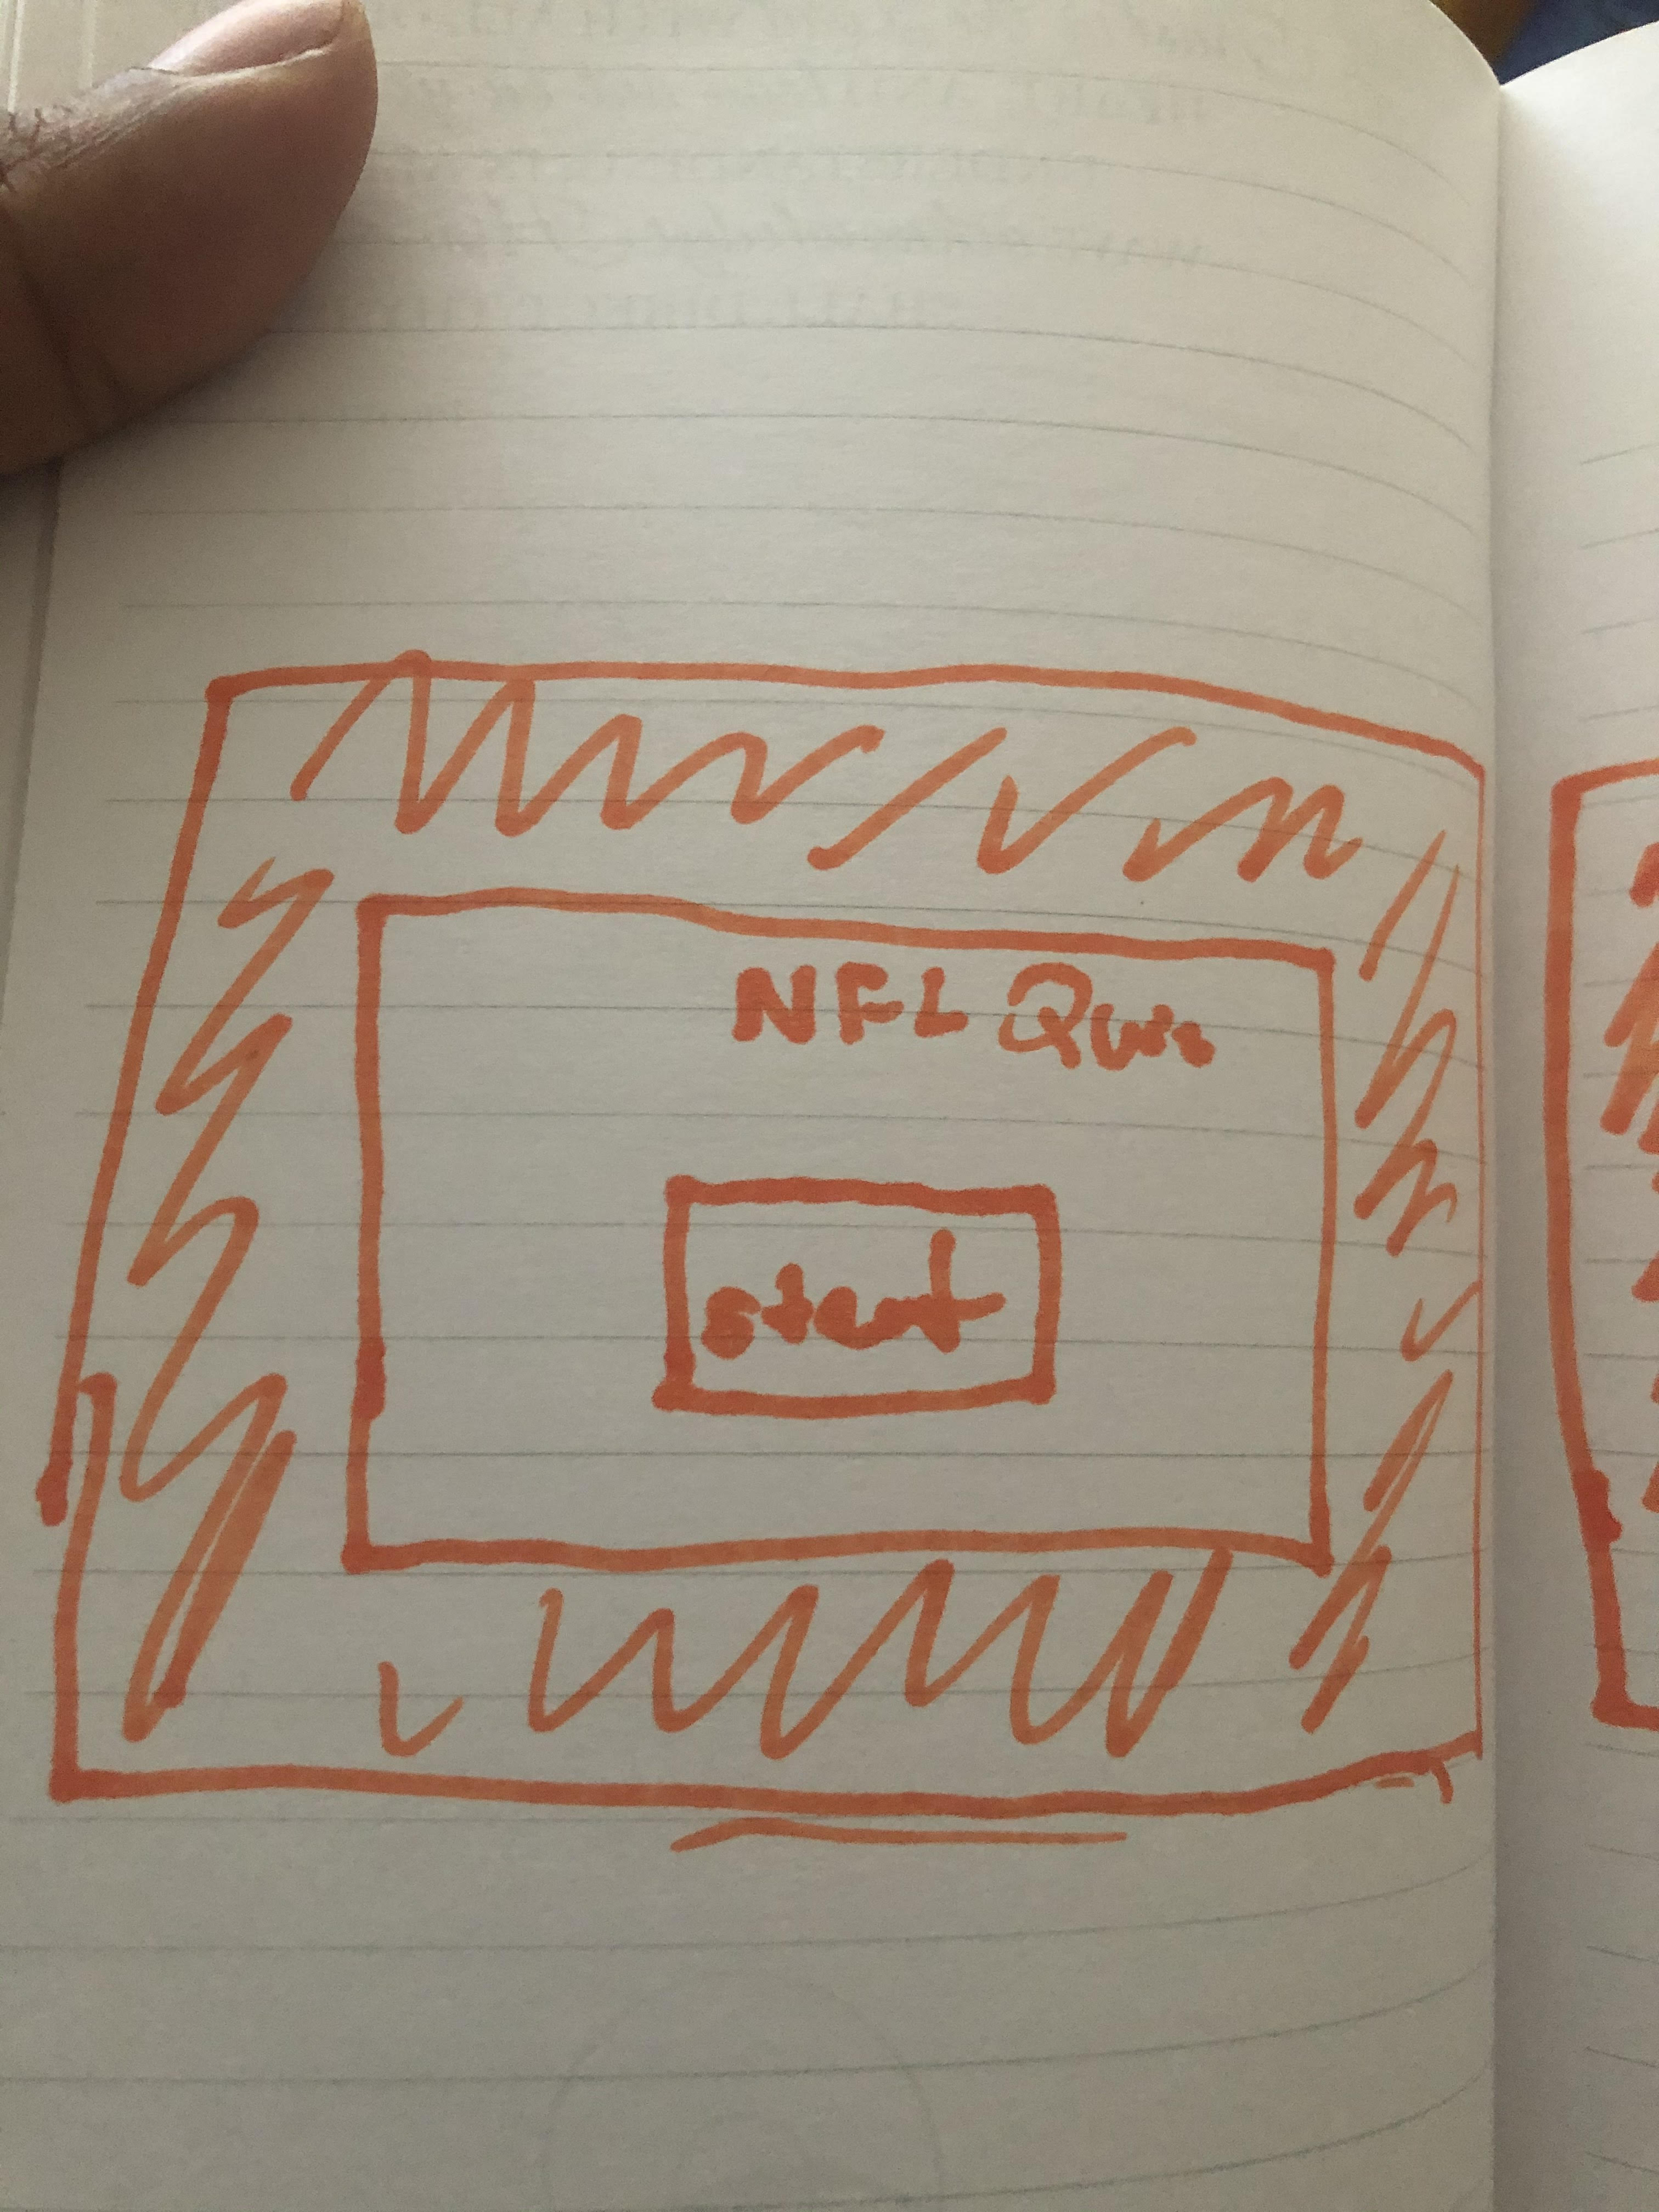 NFL Quiz
start